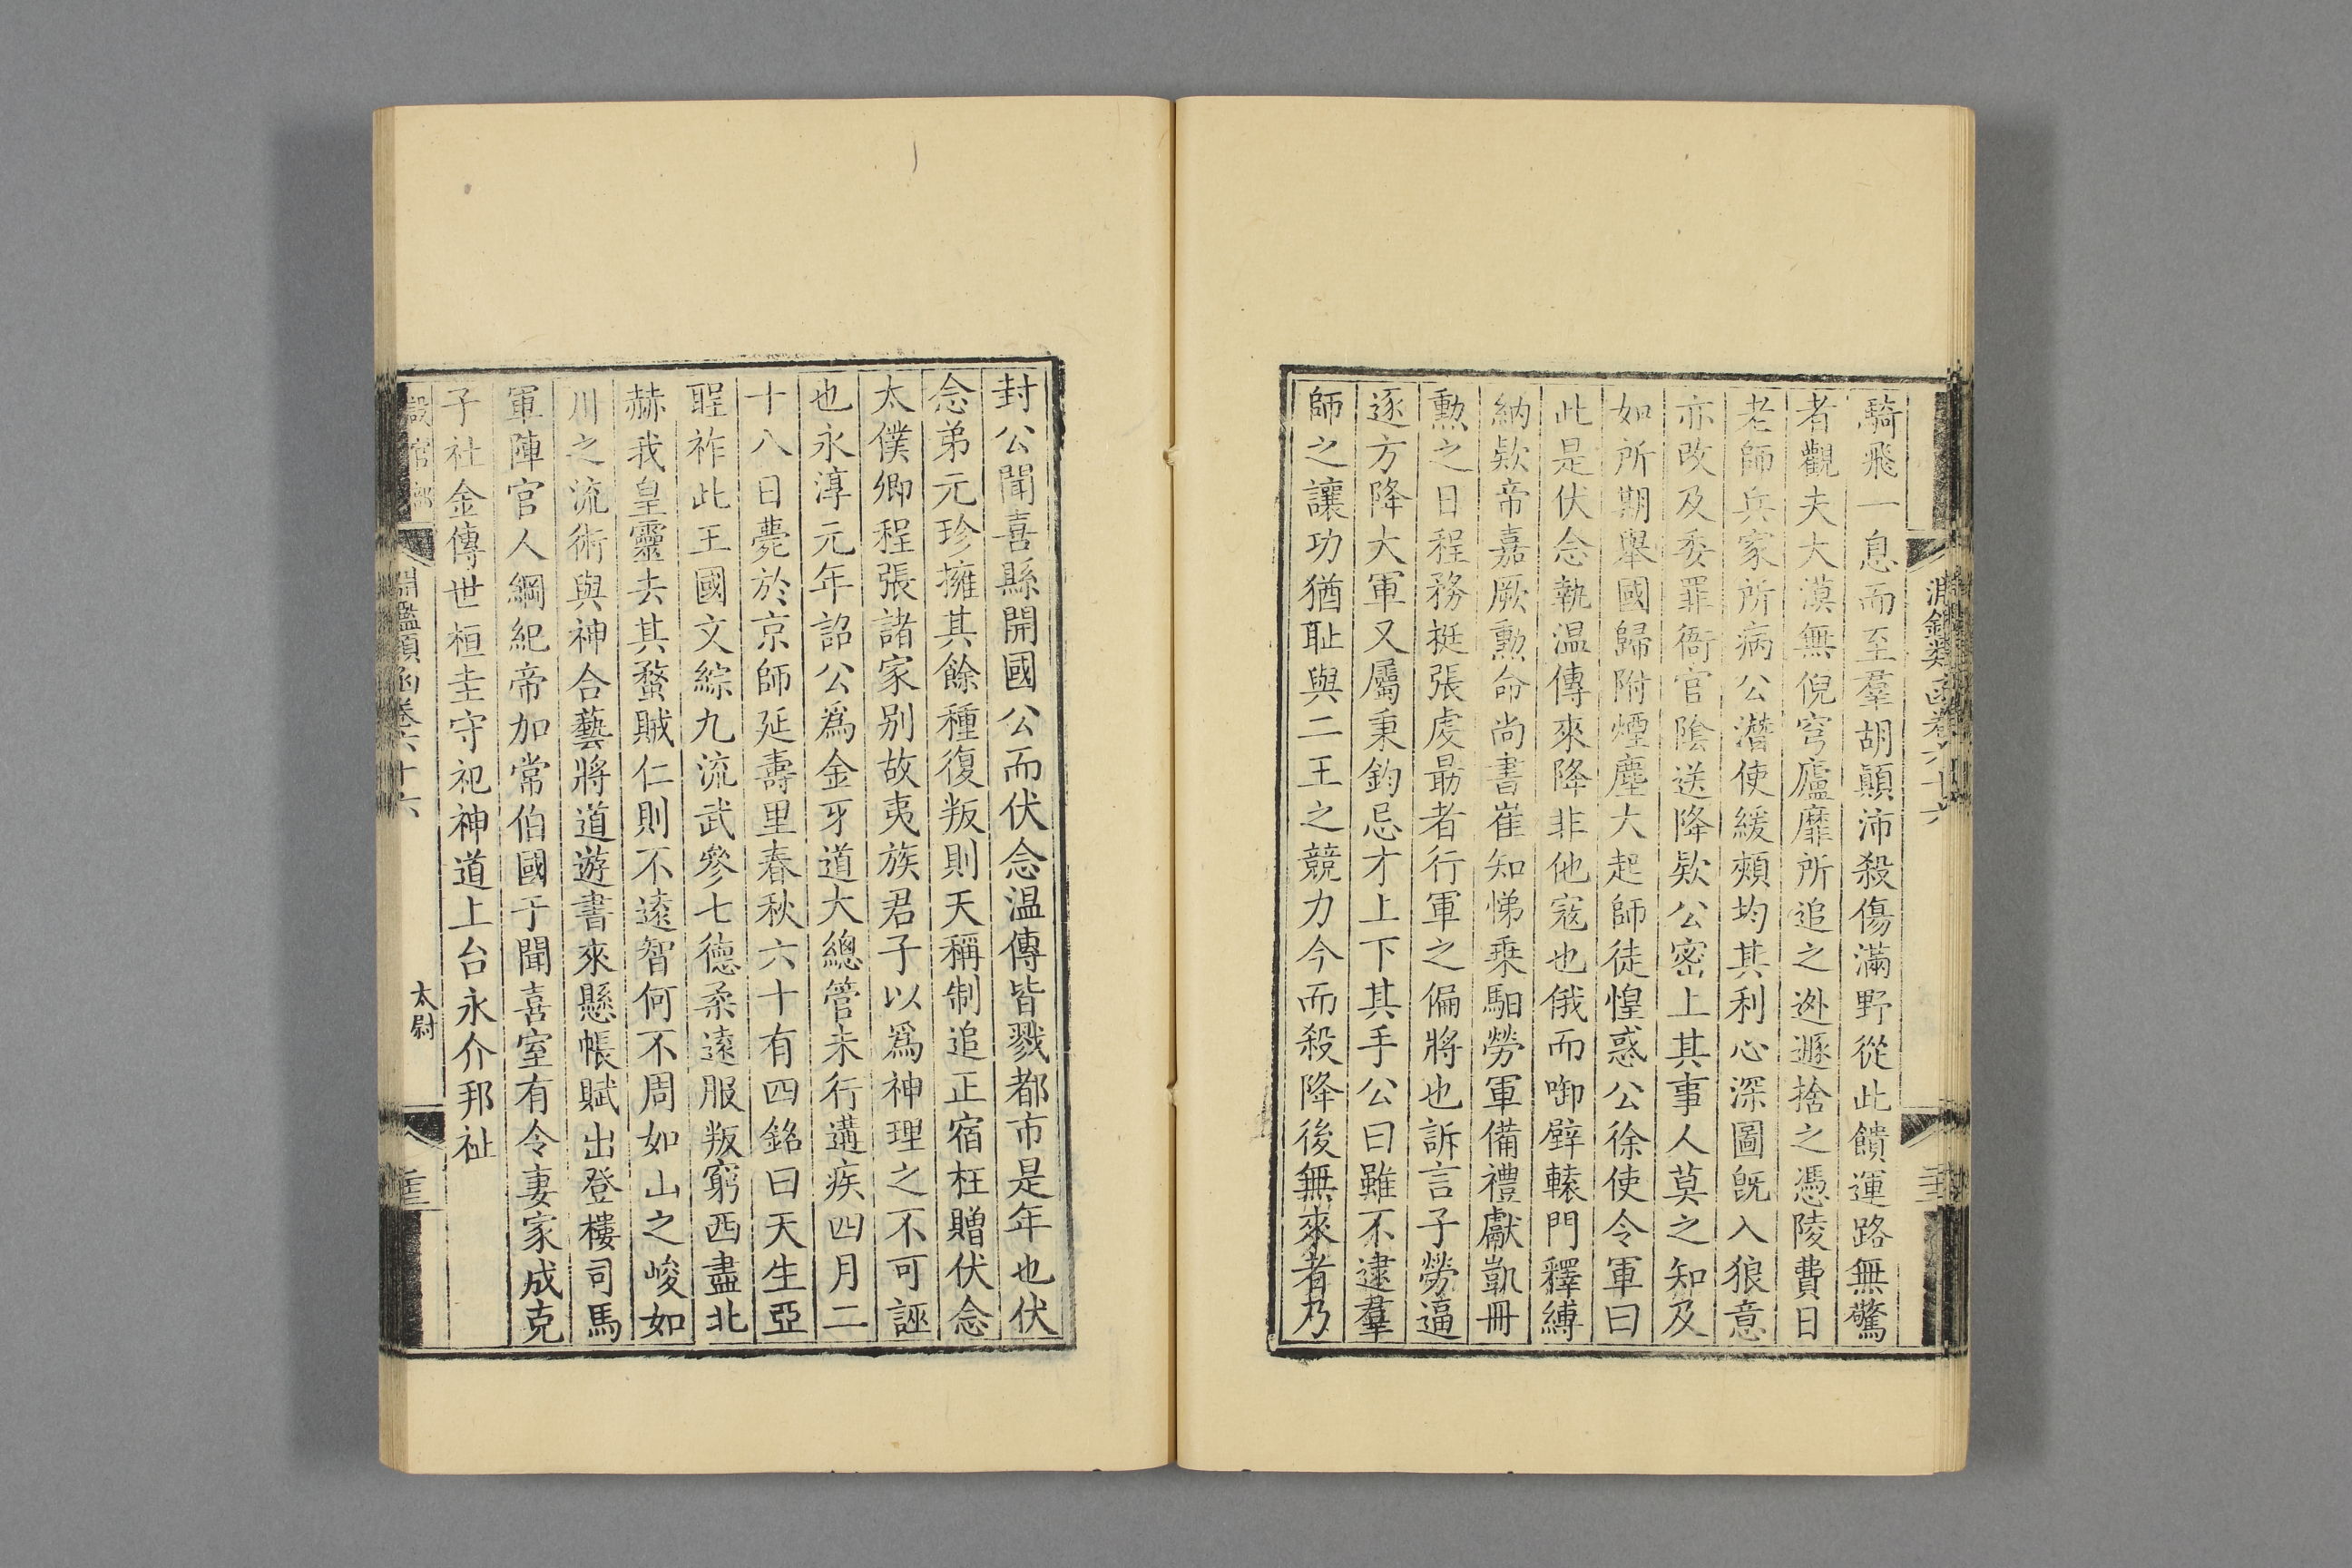 騎飛一息而至羣胡顛沛殺傷滿野從此饋運路無驚
者觀夫大漠無倪穹廬靡所追之逊遯捨之憑陵費日
老師兵家所病公潛使緩頰均其利心深圖旣入狼意
亦改及委罪衙官陰送降欵公密上其事人莫之知及
如所期舉國歸附煙塵大起師徒惶惑公徐使令軍曰
此是伏念執温傳來降非他寇也俄而啣辟轅門釋縛
納欵帝嘉厥勲命尚書崔知悌乗馹勞軍備禮獻凱冊
勲之日程務挺張虔勗者行軍之偏將也訴言子勞逼
逐方降大軍又屬秉鈞忌才上下其手公曰雖不逮羣
師之讓功猶耻與二王之競力今而殺降後無來者乃
封公聞喜縣開國公而伏念温傳皆戮都市是年也伏
念弟元珍擁其餘種復叛則天稱制追正宿枉贈伏念
太僕卿程張諸家别故夷族君子以爲神理之不可誣
也永淳元年詔公爲金牙道大總管未行遘疾四月二
十八日薨於京師延壽里春秋六十有四銘曰天生亞
聖祚此王國文綜九流武參七德柔遠服叛窮西盡北
赫我皇靈去其蝥賊仁則不遠智何不周如山之峻如
川之流術與神合藝將道遊書來懸帳賦出登樓司馬
軍陣官人綱紀帝加常伯國于聞喜室有令妻家成克
子社金傳世桓圭守祀神道上台永介邦祉
淵鑑類函卷六十六
太尉